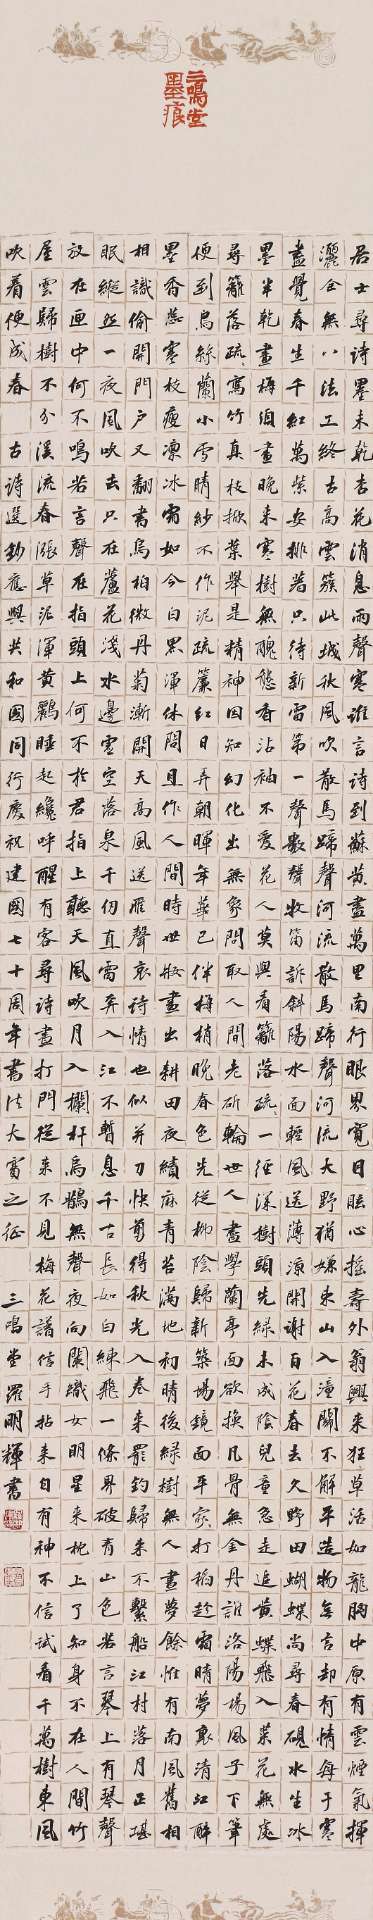 三鳴堂
墨痕
居士尋詩墨未乾杏花消息雨聲寒誰言詩到蘇黃盡萬里南行眼界寬日眩心搖壽外翁興來狂草活如龍胸中原有雲煙氣揮
灑全無八法工終古高雲簇此城秋風吹散馬蹄聲河流散馬蹄聲河流大野猶嫌束山入潼關不解平造物無言卻有情每于寒
盡覺春生千紅萬紫安排著只待新雷第一聲數聲牧笛訴斜陽水面輕風送薄涼開謝百花春去久野田蝴蝶尚尋春硯水生冰
墨半乾畫梅須畫晚來寒樹無醜態香沾袖不愛花人莫與看籬落疏疏一徑深樹頭先綠未成陰兒童急走追黃蝶飛入菜花無處
尋籬落疏疏寫竹真枝掀葉舉是精神因知幻化出無象問取人間老斫輪世人盡學蘭亭面欲換凡骨無金丹誰洛陽楊風子下筆
便到烏絲蘭小雪晴紗不作泥疏簾紅日弄朝暉年華已伴梅梢晚春色先從柳陰歸新築場鏡面平家打稻趁霜晴夢裏清江醉
墨香蕊寒枝瘦凜冰霜如今白黑渾休問且作人間時世妝晝出耕田夜績麻青苔滿地初晴後綠樹無人晝夢餘惟有南風舊相
相識偷開門戶又翻書烏桕微丹菊漸開天高風送雁聲哀詩情也似并刀快剪得秋光入卷來罷釣歸來不繫船江村落月正堪
眠縱然一夜風吹去只在蘆花淺水邊虛空落泉千仞直雷奔入江不暫息千古長如白練飛一條界破青山色若言琴上有琴聲
放在匣中何不鳴若言聲在指頭上何不於君指上聽天風吹月入欄杆烏鵲無聲夜向闌織女明星來枕上了知身不在人間竹
屋雲歸樹不分溪流春漲草泥渾黃鸝睡起纔呼醒有客尋詩晝打門從來不見梅花譜信手拈來自有神不信試看千萬樹東風
吹着便成春 古詩選鈔應興共和國同行慶祝建國七十周年書法大賽之征 三鳴堂羅明輝書